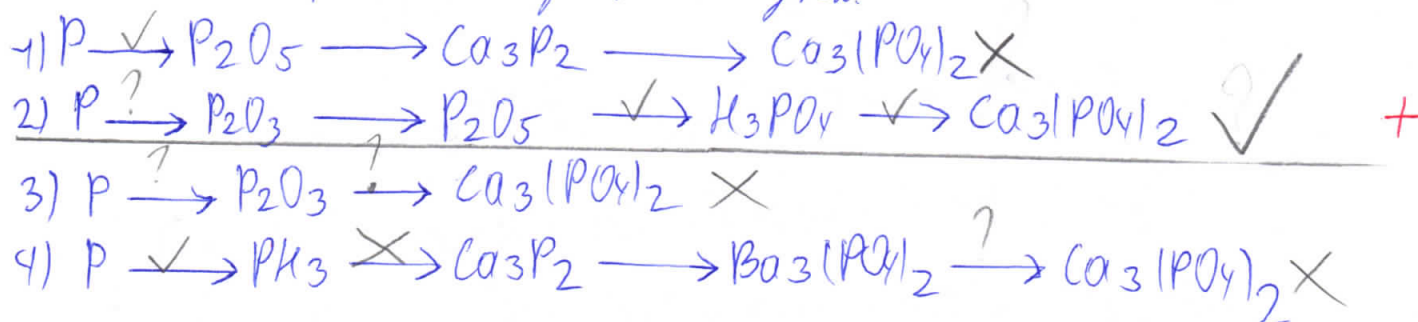 1) P → P₂O₅ → Ca₃P₂ → Ca₃(PO₄)₂
2) P → P₂O₃ → P₂O₅ → H₃PO₄ → Ca₃(PO₄)₂ +
3) P → P₂O₃ → Ca₃(PO₄)₂
4) P → PH₃ → Ca₃P₂ → Ba₃(PO₄)₂ → Ca₃(PO₄)₂